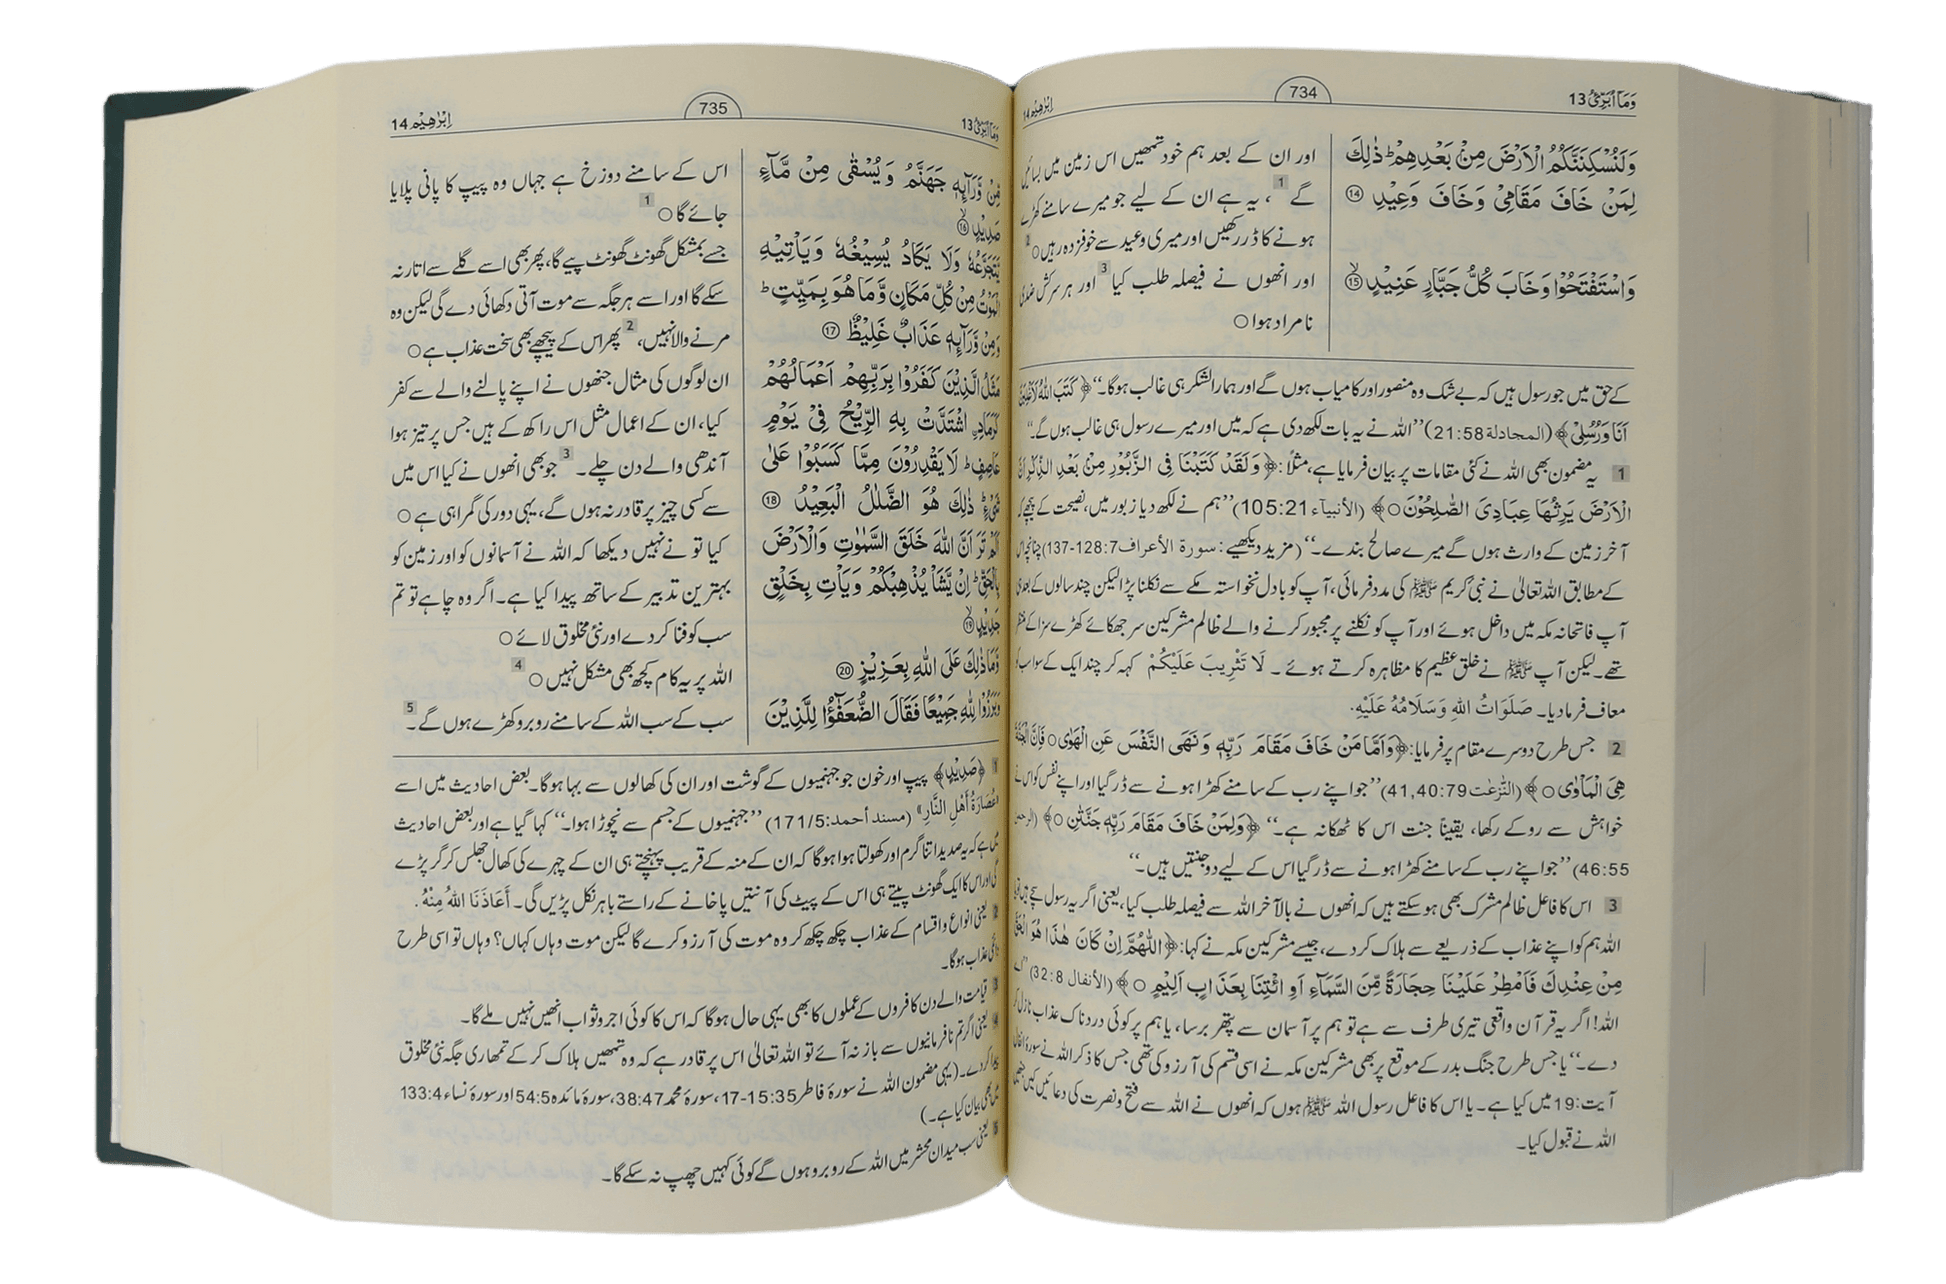 وَمَآ أُبَرِّئُ 13
734
اِبْرٰهِيْم 14
وَلَنُسْكِنَنَّكُمُ الْاَرْضَ مِنْۢ بَعْدِهِمْ ؕ ذٰلِكَ
لِمَنْ خَافَ مَقَامِيْ وَخَافَ وَعِيْدِ ⑭
وَاسْتَفْتَحُوْا وَخَابَ كُلُّ جَبَّارٍ عَنِيْدٍ ۙ⑮
اور ان کے بعد ہم خود تمھیں اس زمین میں بسائیں
گے 1 ، یہ ہے ان کے لیے جو میرے سامنے کھڑے
ہونے کا ڈر رکھیں اور میری وعید سے خوفزدہ رہیں ○ 2
اور انھوں نے فیصلہ طلب کیا 3 اور ہر سرکش ضدی
نامراد ہوا ○
کے حق میں جو رسول ہیں کہ بے شک وہ منصور اور کامیاب ہوں گے اور ہمارا لشکر ہی غالب ہوگا۔“ ﴿ كَتَبَ اللّٰهُ لَاَغْلِبَنَّ
اَنَا وَرُسُلِيْ ﴾ (المجادلة 21:58) ”اللہ نے یہ بات لکھ دی ہے کہ میں اور میرے رسول ہی غالب ہوں گے۔“
1 یہ مضمون بھی اللہ نے کئی مقامات پر بیان فرمایا ہے، مثلاً: ﴿ وَلَقَدْ كَتَبْنَا فِى الزَّبُوْرِ مِنْۢ بَعْدِ الذِّكْرِ اَنَّ
الْاَرْضَ يَرِثُهَا عِبَادِيَ الصّٰلِحُوْنَ ○ ﴾ (الأنبيآء 105:21) ”ہم نے لکھ دیا زبور میں، نصیحت کے پیچھے کہ
آخر زمین کے وارث ہوں گے میرے صالح بندے۔“ (مزید دیکھیے: سورة الأعراف 128:7-137) چنانچہ اس
کے مطابق اللہ تعالیٰ نے نبی کریم ﷺ کی مدد فرمائی، آپ کو بادل نخواستہ مکے سے نکلنا پڑا لیکن چند سالوں کے بعد ہی
آپ فاتحانہ مکہ میں داخل ہوئے اور آپ کو نکلنے پر مجبور کرنے والے ظالم مشرکین سر جھکائے کھڑے سزا کے منتظر
تھے۔ لیکن آپ ﷺ نے خلق عظیم کا مظاہرہ کرتے ہوئے ۔ لَا تَثْرِيبَ عَلَيْكُمْ کہہ کر چند ایک کے سوا سب کو
معاف فرما دیا۔ صَلَوَاتُ اللهِ وَسَلَامُهُ عَلَيْهِ.
2 جس طرح دوسرے مقام پر فرمایا: ﴿ وَاَمَّا مَنْ خَافَ مَقَامَ رَبِّهٖ وَنَهَى النَّفْسَ عَنِ الْهَوٰى ○ فَاِنَّ الْجَنَّةَ
هِيَ الْمَاْوٰى ○ ﴾ (النّٰزعٰت 41,40:79) ”جو اپنے رب کے سامنے کھڑا ہونے سے ڈر گیا اور اپنے نفس کو اس نے
خواہش سے روکے رکھا، یقیناً جنت اس کا ٹھکانہ ہے۔“ ﴿ وَلِمَنْ خَافَ مَقَامَ رَبِّهٖ جَنَّتٰنِ ○ ﴾ (الرحمن
46:55) ”جو اپنے رب کے سامنے کھڑا ہونے سے ڈر گیا اس کے لیے دو جنتیں ہیں۔“
3 اس کا فاعل ظالم مشرک بھی ہو سکتے ہیں کہ انھوں نے بالآخر اللہ سے فیصلہ طلب کیا، یعنی اگر یہ رسول سچے ہیں تو یا
اللہ ہم کو اپنے عذاب کے ذریعے سے ہلاک کر دے، جیسے مشرکین مکہ نے کہا: ﴿ اللّٰهُمَّ اِنْ كَانَ هٰذَا هُوَ الْحَقَّ
مِنْ عِنْدِكَ فَاَمْطِرْ عَلَيْنَا حِجَارَةً مِّنَ السَّمَآءِ اَوِ ائْتِنَا بِعَذَابٍ اَلِيْمٍ ○ ﴾ (الأنفال 32:8) ”اے
اللہ! اگر یہ قرآن واقعی تیری طرف سے ہے تو ہم پر آسمان سے پتھر برسا، یا ہم پر کوئی دردناک عذاب نازل کر
دے۔“ یا جس طرح جنگ بدر کے موقع پر بھی مشرکین مکہ نے اسی قسم کی آرزو کی تھی جس کا ذکر اللہ نے سورۂ انفال
آیت: 19 میں کیا ہے۔ یا اس کا فاعل رسول اللہ ﷺ ہوں کہ انھوں نے اللہ سے فتح و نصرت کی دعائیں کیں جنھیں
اللہ نے قبول کیا۔
وَمَآ أُبَرِّئُ 13
735
اِبْرٰهِيْم 14
مِّنْ وَّرَآىِٕهٖ جَهَنَّمُ وَيُسْقٰى مِنْ مَّآءٍ
صَدِيْدٍ ۙ⑯
يَّتَجَرَّعُهٗ وَلَا يَكَادُ يُسِيْغُهٗ وَيَاْتِيْهِ
الْمَوْتُ مِنْ كُلِّ مَكَانٍ وَّمَا هُوَ بِمَيِّتٍ ؕ
وَمِنْ وَّرَآىِٕهٖ عَذَابٌ غَلِيْظٌ ⑰
مَثَلُ الَّذِيْنَ كَفَرُوْا بِرَبِّهِمْ اَعْمَالُهُمْ
كَرَمَادِ اۨشْتَدَّتْ بِهِ الرِّيْحُ فِيْ يَوْمٍ
عَاصِفٍ ؕ لَا يَقْدِرُوْنَ مِمَّا كَسَبُوْا عَلٰى
شَيْءٍ ؕ ذٰلِكَ هُوَ الضَّلٰلُ الْبَعِيْدُ ⑱
اَلَمْ تَرَ اَنَّ اللّٰهَ خَلَقَ السَّمٰوٰتِ وَالْاَرْضَ
بِالْحَقِّ ؕ اِنْ يَّشَاْ يُذْهِبْكُمْ وَيَاْتِ بِخَلْقٍ
جَدِيْدٍ ۙ⑲
وَّمَا ذٰلِكَ عَلَى اللّٰهِ بِعَزِيْزٍ ⑳
وَبَرَزُوْا لِلّٰهِ جَمِيْعًا فَقَالَ الضُّعَفٰٓؤُا لِلَّذِيْنَ
اس کے سامنے دوزخ ہے جہاں وہ پیپ کا پانی پلایا
جائے گا ○ 1
جسے بمشکل گھونٹ گھونٹ پیے گا، پھر بھی اسے گلے سے اتار نہ
سکے گا اور اسے ہر جگہ سے موت آتی دکھائی دے گی لیکن وہ
مرنے والا نہیں، 2 پھر اس کے پیچھے بھی سخت عذاب ہے ○
ان لوگوں کی مثال جنھوں نے اپنے پالنے والے سے کفر
کیا، ان کے اعمال مثل اس راکھ کے ہیں جس پر تیز ہوا
آندھی والے دن چلے۔ 3 جو بھی انھوں نے کیا اس میں
سے کسی چیز پر قادر نہ ہوں گے، یہی دور کی گمراہی ہے ○
کیا تو نے نہیں دیکھا کہ اللہ نے آسمانوں کو اور زمین کو
بہترین تدبیر کے ساتھ پیدا کیا ہے۔ اگر وہ چاہے تو تم
سب کو فنا کر دے اور نئی مخلوق لائے ○
اللہ پر یہ کام کچھ بھی مشکل نہیں ○ 4
سب کے سب اللہ کے سامنے روبرو کھڑے ہوں گے۔ 5
1 ﴿ صَدِيْدٍ ﴾ پیپ اور خون جو جہنمیوں کے گوشت اور ان کی کھالوں سے بہا ہوگا۔ بعض احادیث میں اسے
«عُصَارَةُ أَهْلِ النَّارِ» (مسند أحمد: 171/5) ”جہنمیوں کے جسم سے نچوڑا ہوا۔“ کہا گیا ہے اور بعض احادیث
میں ہے کہ یہ صدید اتنا گرم اور کھولتا ہوا ہوگا کہ ان کے منہ کے قریب پہنچتے ہی ان کے چہرے کی کھال جھلس کر گر پڑے
گی اور اس کا ایک گھونٹ پیتے ہی اس کے پیٹ کی آنتیں پاخانے کے راستے باہر نکل پڑیں گی۔ أَعَاذَنَا اللهُ مِنْهُ.
2 یعنی انواع و اقسام کے عذاب چکھ چکھ کر وہ موت کی آرزو کرے گا لیکن موت وہاں کہاں؟ وہاں تو اسی طرح
دائمی عذاب ہوگا۔
3 قیامت والے دن کافروں کے عملوں کا بھی یہی حال ہوگا کہ اس کا کوئی اجر و ثواب انھیں نہیں ملے گا۔
4 یعنی اگر تم نافرمانیوں سے باز نہ آئے تو اللہ تعالیٰ اس پر قادر ہے کہ وہ تمھیں ہلاک کر کے تمھاری جگہ نئی مخلوق
پیدا کر دے۔ (یہی مضمون اللہ نے سورۂ فاطر 15:35-17، سورۂ محمد 38:47، سورۂ مائدہ 54:5 اور سورۂ نساء 133:4
میں بھی بیان کیا ہے۔)
5 یعنی سب میدان محشر میں اللہ کے روبرو ہوں گے کوئی کہیں چھپ نہ سکے گا۔